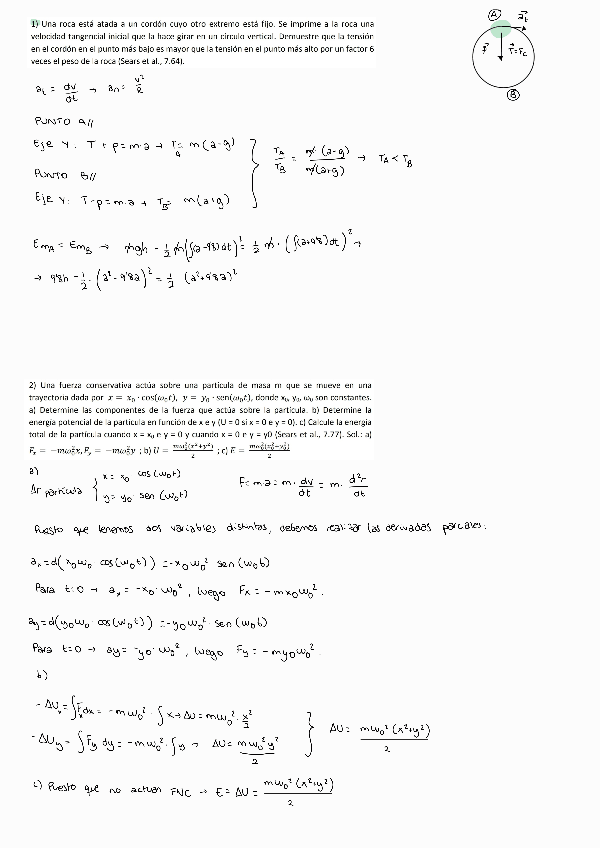 1) Una roca está atada a un cordón cuyo otro extremo está fijo. Se imprime a la roca una
velocidad tangencial inicial que la hace girar en un círculo vertical. Demuestre que la tensión
en el cordón en el punto más bajo es mayor que la tensión en el punto más alto por un factor 6
veces el peso de la roca (Sears et al., 7.64).
A
a_t
P
T=F_c
B
a_t = dv/dt → a_n = v²/R
PUNTO A//
Eje Y: T + p = m·a → T_A = m(a-g)
PUNTO B//
Eje Y: T-p = m·a → T_B = m(a+g)
T_A/T_B = m(a-g)/m(a+g) → T_A < T_B
Em_A = Em_B → mgh - 1/2 m(∫(a-9'8)dt)² = 1/2 m·(∫(a+9'8)dt)² →
→ 9'8h - 1/2·(a²-9'8a)² = 1/2 (a²+9'8a)²
2) Una fuerza conservativa actúa sobre una partícula de masa m que se mueve en una
trayectoria dada por x = x₀ · cos(ω₀t), y = y₀ · sen(ω₀t), donde x₀, y₀, ω₀ son constantes.
a) Determine las componentes de la fuerza que actúa sobre la partícula. b) Determine la
energía potencial de la partícula en función de x e y (U = 0 si x = 0 e y = 0). c) Calcule la energía
total de la partícula cuando x = x₀ e y = 0 y cuando x = 0 e y = y0 (Sears et al., 7.77). Sol.: a)
Fₓ = −mω₀²x, F_y = −mω₀²y ; b) U = mω₀²(x²+y²)/2 ; c) E = mω₀²(x₀²+y₀²)/2
a)
Δr partícula { x = x₀ cos(ω₀t)
y = y₀· sen(ω₀t)
F = m·a = m· dv/dt = m· d²r/dt
Puesto que tenemos dos variables distintas, debemos realizar las derivadas parciales:
aₓ = d(x₀ω₀ cos(ω₀t)) = -x₀ω₀² sen(ω₀t)
Para t=0 → aₓ = -x₀·ω₀², luego Fx = -mx₀ω₀².
ay = d(y₀ω₀ ·cos(ω₀t)) = -y₀ω₀² · sen(ω₀t)
Para t=0 → ay = -y₀·ω₀², luego Fy = -my₀ω₀².
b)
-ΔUₓ = ∫Fₓdx = -mω₀² · ∫x → ΔU = mω₀²· x²/2
-ΔUy = ∫Fy dy = -mω₀²·∫y → ΔU = mω₀²y²/2
ΔU = mω₀²(x²+y²)/2
c) Puesto que no actúan FNC → E = ΔU = mω₀²(x²+y²)/2